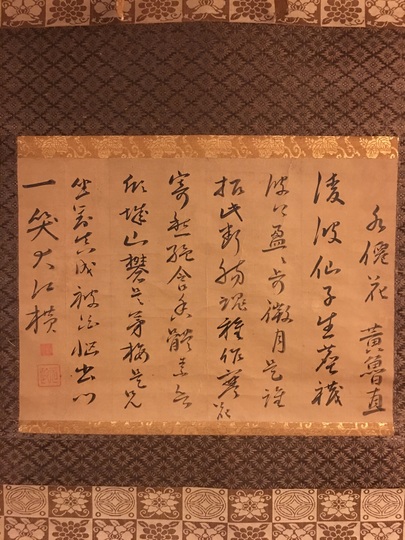 水僊花　黄魯直
凌波仙子生塵襪
波上盈〻歩微月是誰
招此斷腸魂種作寒花
寄愁絶含香體素欲
傾城山礬是弟梅是兄
坐對真成被花惱出門
一笑大江横